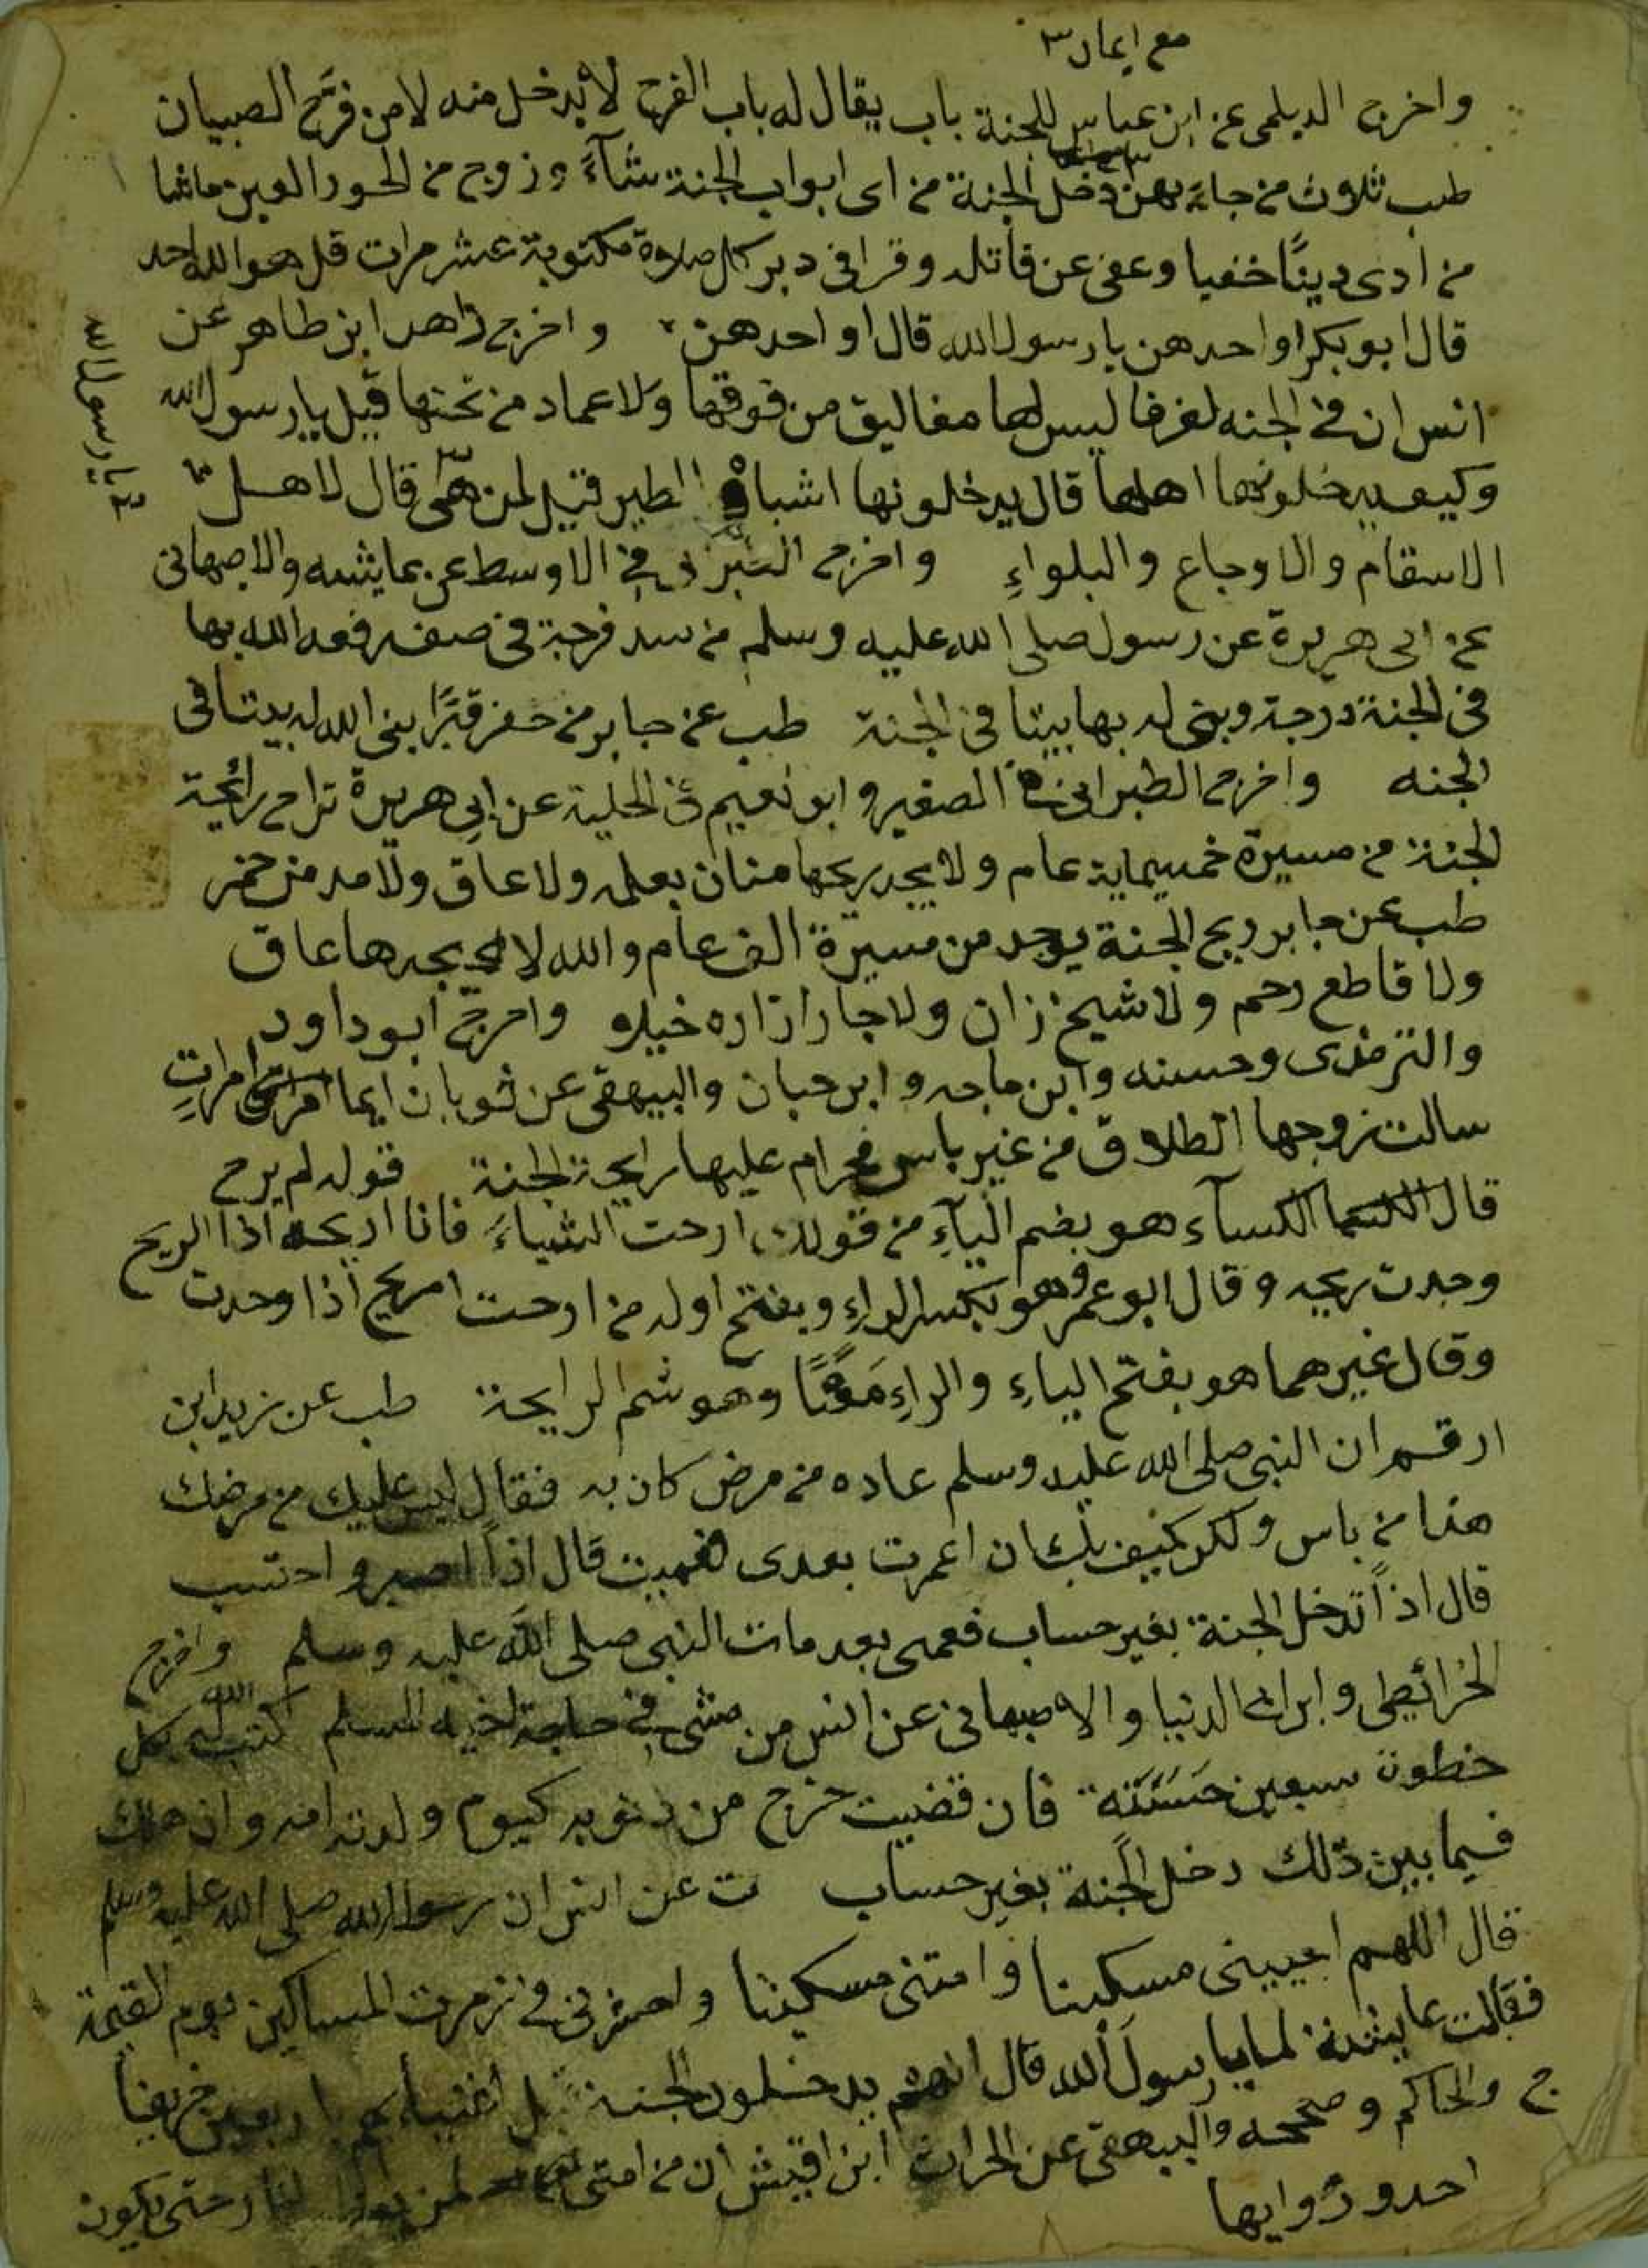 مع ايمان ٣
واخرج الديلمى عن ابن عباس للجنة باب يقال له باب الفرح لا يدخل منه لا من فرح الصبيان
طب ثلاث من جاء بهن دخل الجنة من اى ابواب الجنة شآءَ وزوج من الحور العين ماشا
من ادى دينًا خفيا وعفى عن قاتله وقرا فى دبر كل صلاوة مكتوبة عشر مرات قل هو الله احد
قال ابو بكر او احدهن يا رسول الله قال او احدهن واخرج زاهد ابن طاهر عن
انس ان فى الجنه لغرفا ليس لها مغاليق من فوقها ولا عماد من تحتها قيل يا رسول الله
وكيف يدخلونها اهلها قال يدخلونها اشباه الطير قيل لمن هى قال لاهل
الاسقام والاوجاع والبلواءِ واخرج فى الاوسط عن عايشه والاصبهانى
عن ابى هريرة عن رسول صلى الله عليه وسلم من سد فرجة فى صف رفعه الله بها
فى الجنة درجة وبنى له بها بيتا فى الجنة طب عن جابر من حفر قبرًا بنى الله له بيتا فى
الجنه واخرج الطبرانى فى الصغير وابو نعيم فى الحلية عن ابى هريرة تراح رائحة
الجنة من مسيرة خمسيماية عام ولا يجد ريحها منان بعلمه ولا عاق ولا مدمن خمر
طب عن جابر ريح الجنة يوجد من مسيرة الف عام والله لا يجدها عاق
ولا قاطع رحم ولا شيخ زان ولا جار ازاره خيلاو واخرج ابو داود
والترمذى وحسنه وابن ماجه وابن حبان والبيهقى عن ثوبان ايما امراتٍ
سالت زوجها الطلاوق من غير باس فحرام عليها رايحة الجنة قوله لم يرح
قال الكسآء هو بضم اليآءِ من قولك ارحت الشياءَ فانا اريحه اذا الريح
وجدت ريحه وقال ابو عمرو هو بكسر الراءِ وبفتح اوله من ارحت اريح اذا وجدت
وقال غيرهما هو بفتح الياءِ والراءِ معًا وهو شم الرايحة طب عن زيد ابن
ارقم ان النبى صلى الله عليه وسلم عاده من مرض كان به فقال ليس عليك من مرضك
هذا من باس ولكن كيف بك ان اعمرت بعدى فعميت قال اذاً اصبر واحتسب
قال اذاً تدخل الجنة بغير حساب فعمى بعد مات النبى صلى الله عليه وسلم واخرج
الخرائطى وابن ابى الدنيا والاصبهانى عن انس من مشى فى حاجة اخيه المسلم كتب الله له بكل
خطوة سبعين حسنة فان قضيت خرج من ذنوبه كيوم ولدته امه وان هلك
فيما بين ذلك دخل الجنة بغير حساب ت عن انس ان رسول الله صلى الله عليه وسلم
قال اللهم احيينى مسكينا وامتنى مسكينا واحشرنى فى زمرت المساكين يوم القيمة
فقالت عايشة لما يا رسول الله قال انهم يدخلون الجنة قبل اغنيائهم باربعين خريفا
ج والحاكم وصححه والبيهقى عن الحرات ابن اقيش ان من امتى لمن يعظم للنار حتى يكون
احد زوايها
يا رسول الله